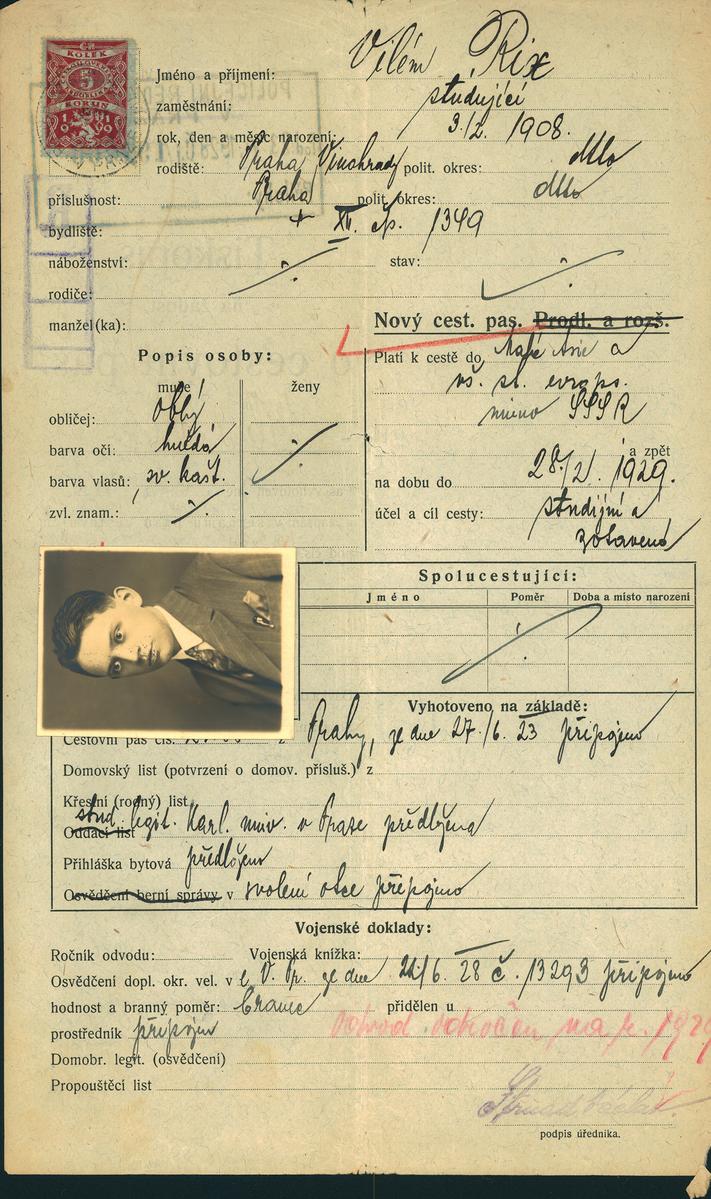 KOLEK
5
KORUN
1919
Jméno a příjmení: Vilém Rix
zaměstnání: studující
rok, den a měsíc narození: 3./2. 1908.
rodiště: Praha Vinohrady polit. okres: dtto
příslušnost: Praha polit. okres: dtto
bydliště: XII. čp. 1349
náboženství: stav:
rodiče:
manžel(ka):
Nový cest. pas. Prodl. a rozš.
Popis osoby:
muže ženy
obličej: oblý
barva očí: hnědá
barva vlasů: sv. kašt.
zvl. znam.:
Platí k cestě do Malé Asie a
vš. st. evrops.
mimo SSSR
a zpět
na dobu do 28./2. 1929.
účel a cíl cesty: studijní a
zotavená
Spolucestující:
Jméno Poměr Doba a místo narození
Vyhotoveno na základě:
Cestovní pas čís. z Prahy, ze dne 27./6. 23 připojeno
Domovský list (potvrzení o domov. přísluš.) z
Křestní (rodný) list
Oddací list stud. legit. Karl. univ. v Praze předložena
Přihláška bytová předložena
Osvědčení berní správy v svolení otce připojeno
Vojenské doklady:
Ročník odvodu: Vojenská knížka:
Osvědčení dopl. okr. vel. v ze dne 21/6. 28 č. 13293 připojeno
hodnost a branný poměr: branec přidělen u
prostředník připojen Odvod odročen na r. 1929
Domobr. legit. (osvědčení)
Propouštěcí list
podpis úředníka.